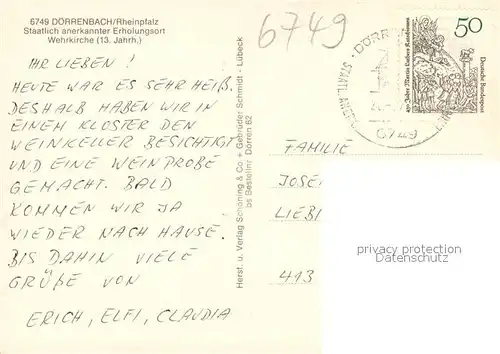 6749 DÖRRENBACH/Rheinpfalz
Staatlich anerkannter Erholungsort
Wehrkirche (13. Jahrh.)
IHR LIEBEN !
HEUTE WAR ES SEHR HEIß.
DESHALB HABEN WIR IN
EINEM KLOSTER DEN
WEINKELLER BESICHTIGT
UND EINE WEINPROBE
GEMACHT. BALD
KOMMEN WIR JA
WIEDER NACH HAUSE.
BIS DAHIN VIELE
GRÜßE VON
ERICH, ELFI, CLAUDIA
Herst. u. Verlag Schöning & Co + Gebrüder Schmidt · Lübeck
bs Bestellnr. Dörren 62
6749
6749
50
Deutsche Bundespost
FAMILIE
JOSE
LIEB
413
privacy protection
Datenschutz